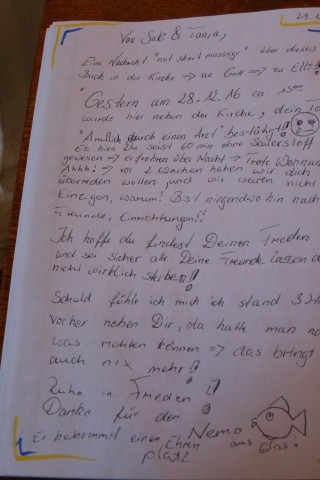 29.
Von Sabi & Tanja,
Eine Nachricht "not short message" über dieses
Buch in der Kirche => an Gott => an Elli!
"Gestern am 28.12.16 ca 15
wurde hier neben der Kirche, dein
"Amtlich durch einen Arzt" bestätigt!
Es hieß Du seist 60 min ohne Sauerstoff
gewesen => erfrohren über Nacht => Trotz Wohnun
Ahhh! => vor 2 Wochen haben wir dich
überreden wollen und wir waren nicht
Einzigen, warum? Bist nirgendwo hin nach
Freunde, Einrichtungen!!
Ich hoffe du findest Deinen Frieden
und sei sicher alle Deine Freunde lassen d
nicht wirklich sterben!
Schuld fühle ich mich ich stand 3
vorher neben Dir, da hatte man no
was richten können => das bringt
auch nix mehr!
Ruhe in Frieden!
Danke für den
Nemo aus Glas!
Er bekommt einen Ehren
platz